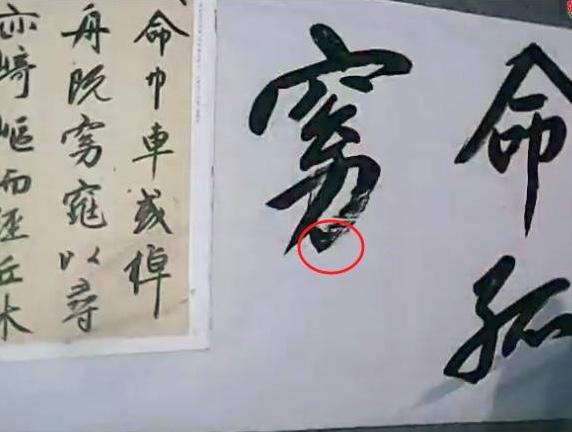 命孤
窈
命巾車或棹
舟既窈窕以尋
亦崎嶇而經丘木